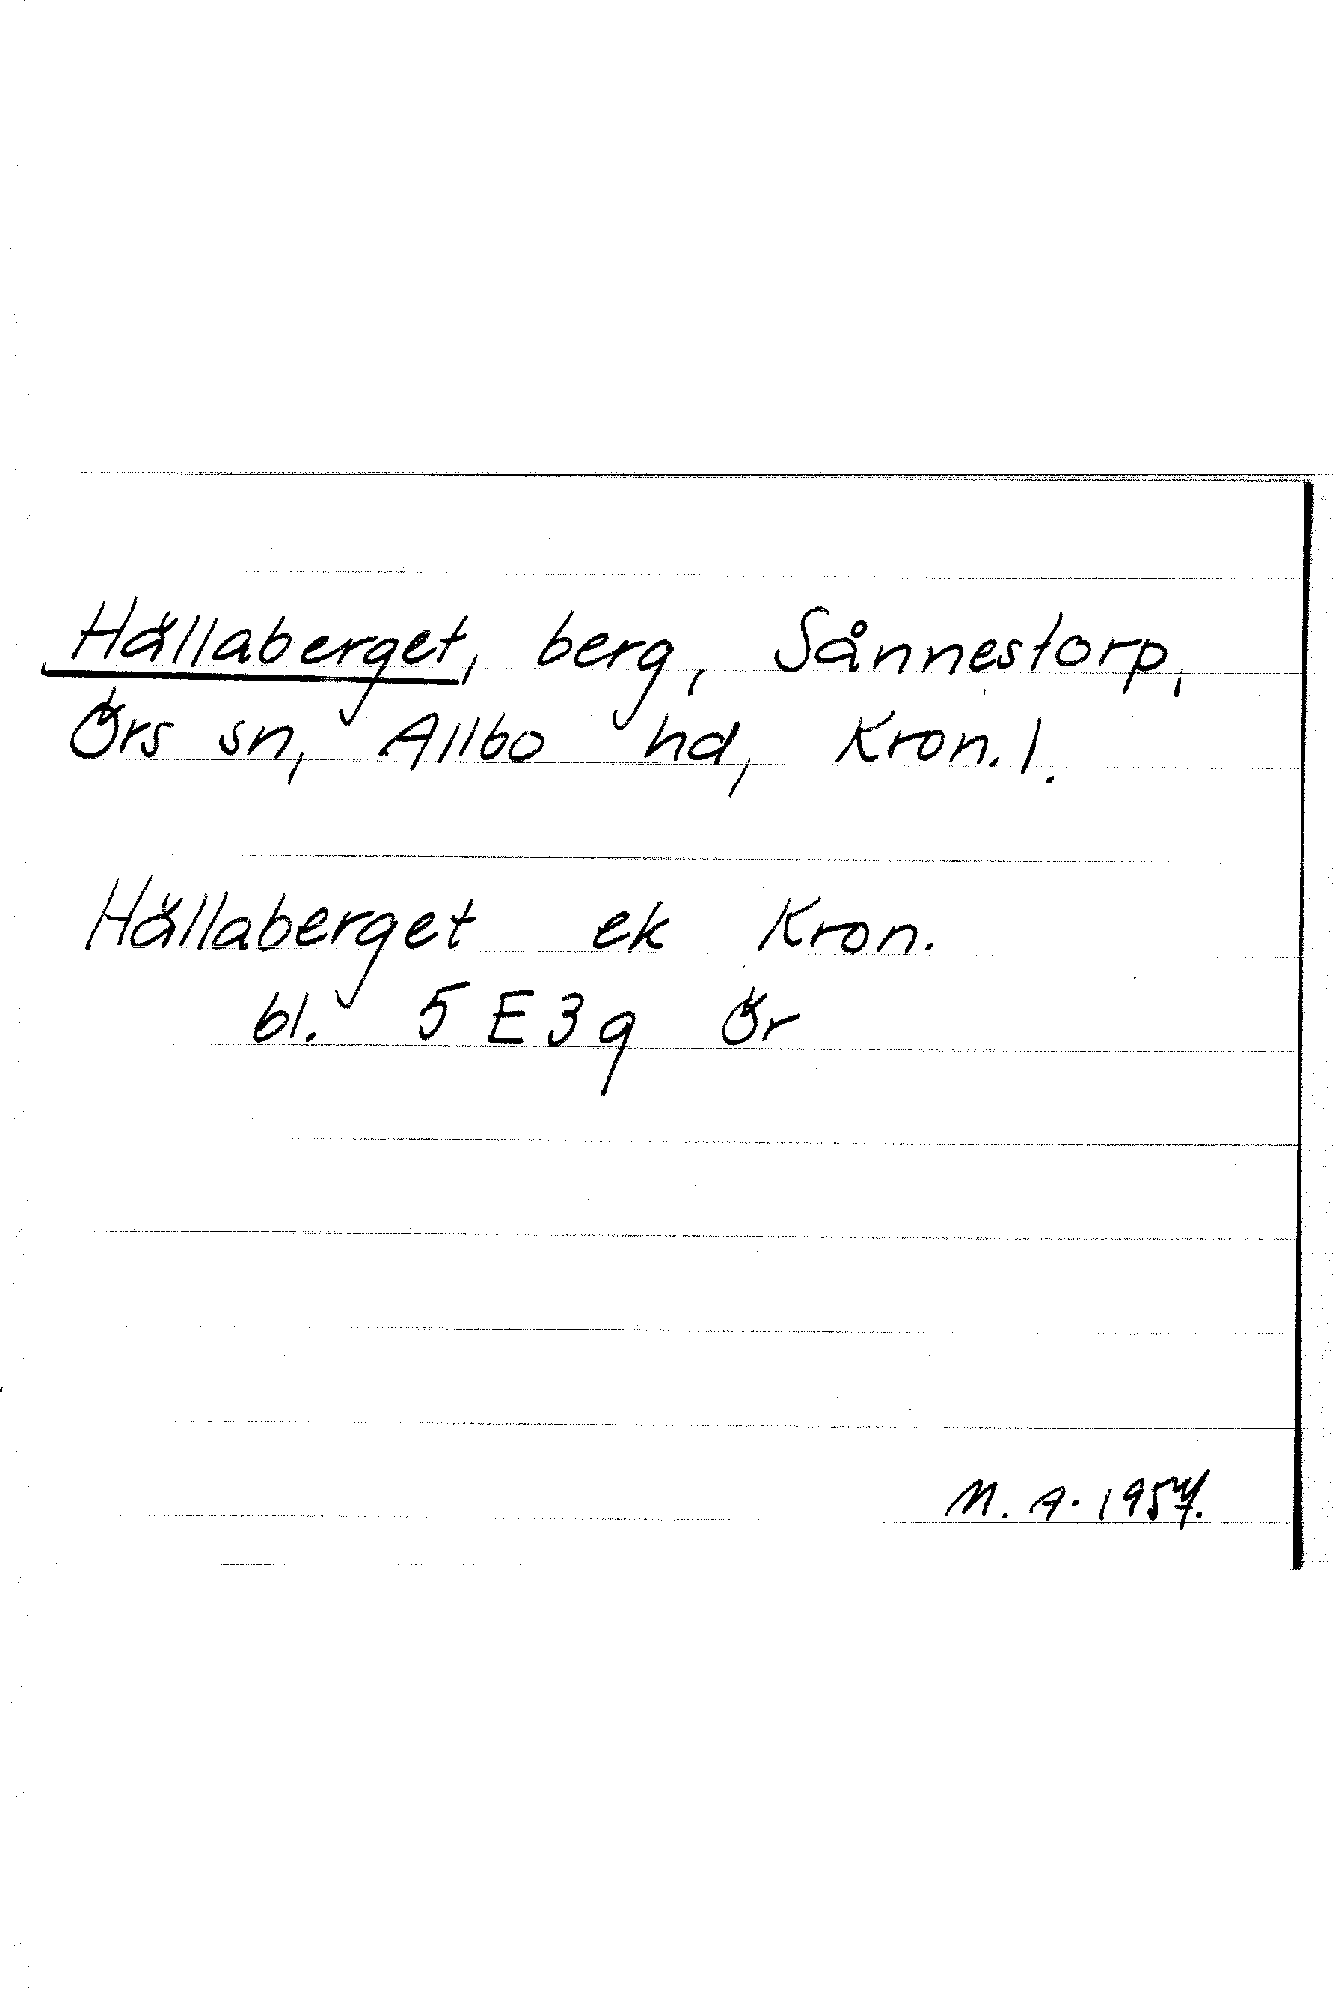 Hällaberget, berg, Sånnestorp,
Örs sn, Allbo hd, Kron. l.
Hällaberget ek Kron.
bl. 5 E 3 g Ör
M. A. 1957.